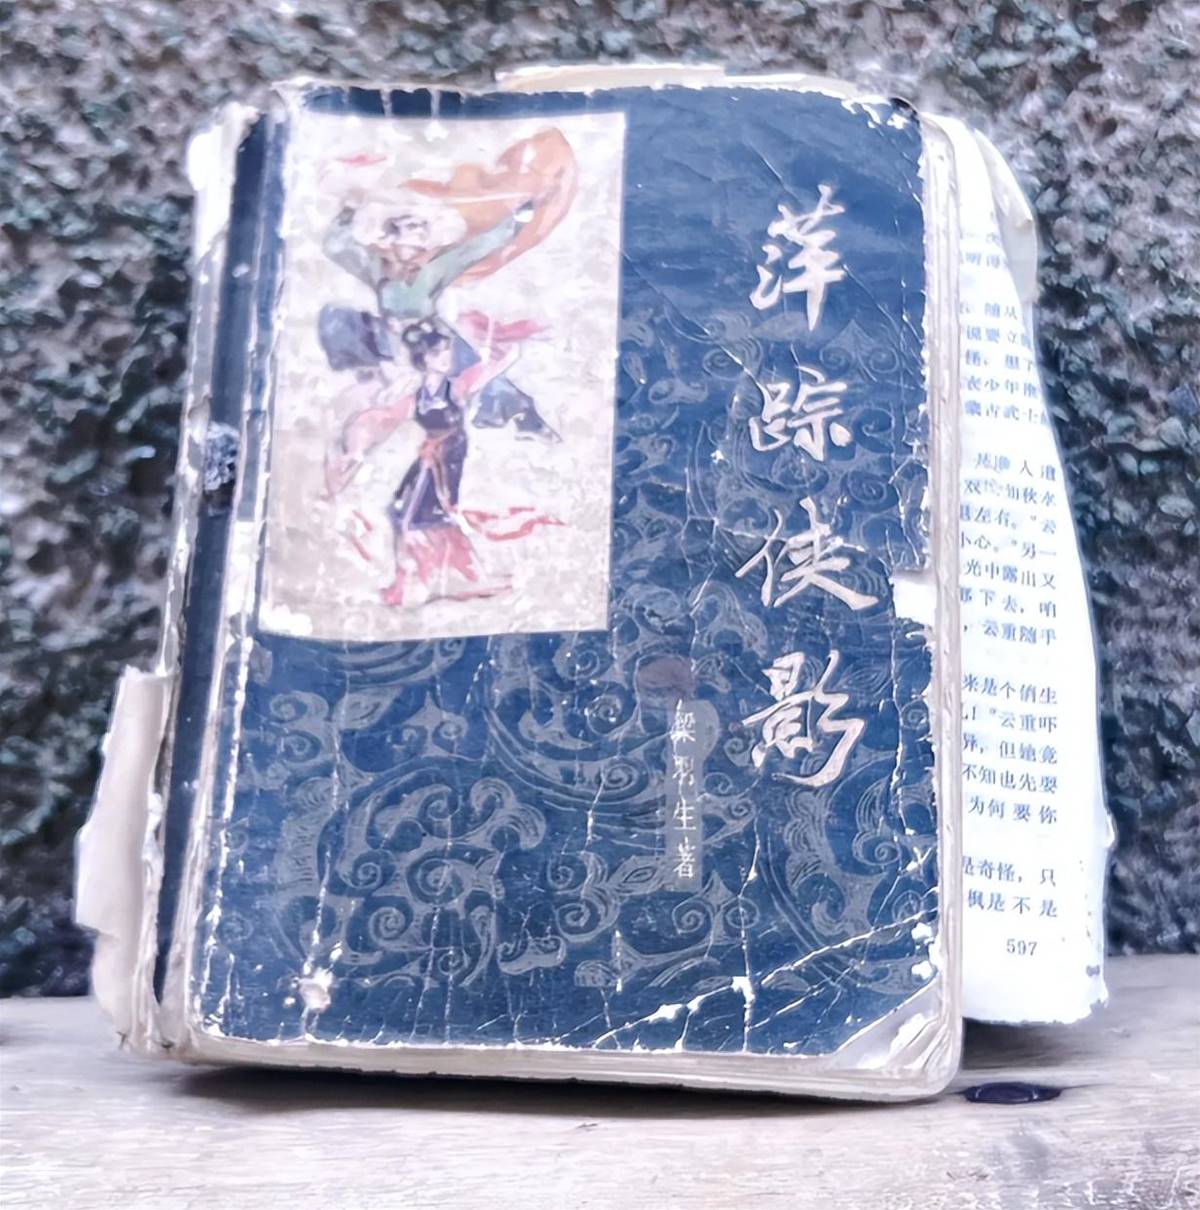 萍踪侠影
梁羽生著
随从
人道
双㇏如秋水
左右。"云
小心。"另一
光中露出又
下去，咱
，云重随手
来是个俏生
"云重吓
异，但她竟
不知也先要
为何要你
是奇怪，只
枫是不是
597